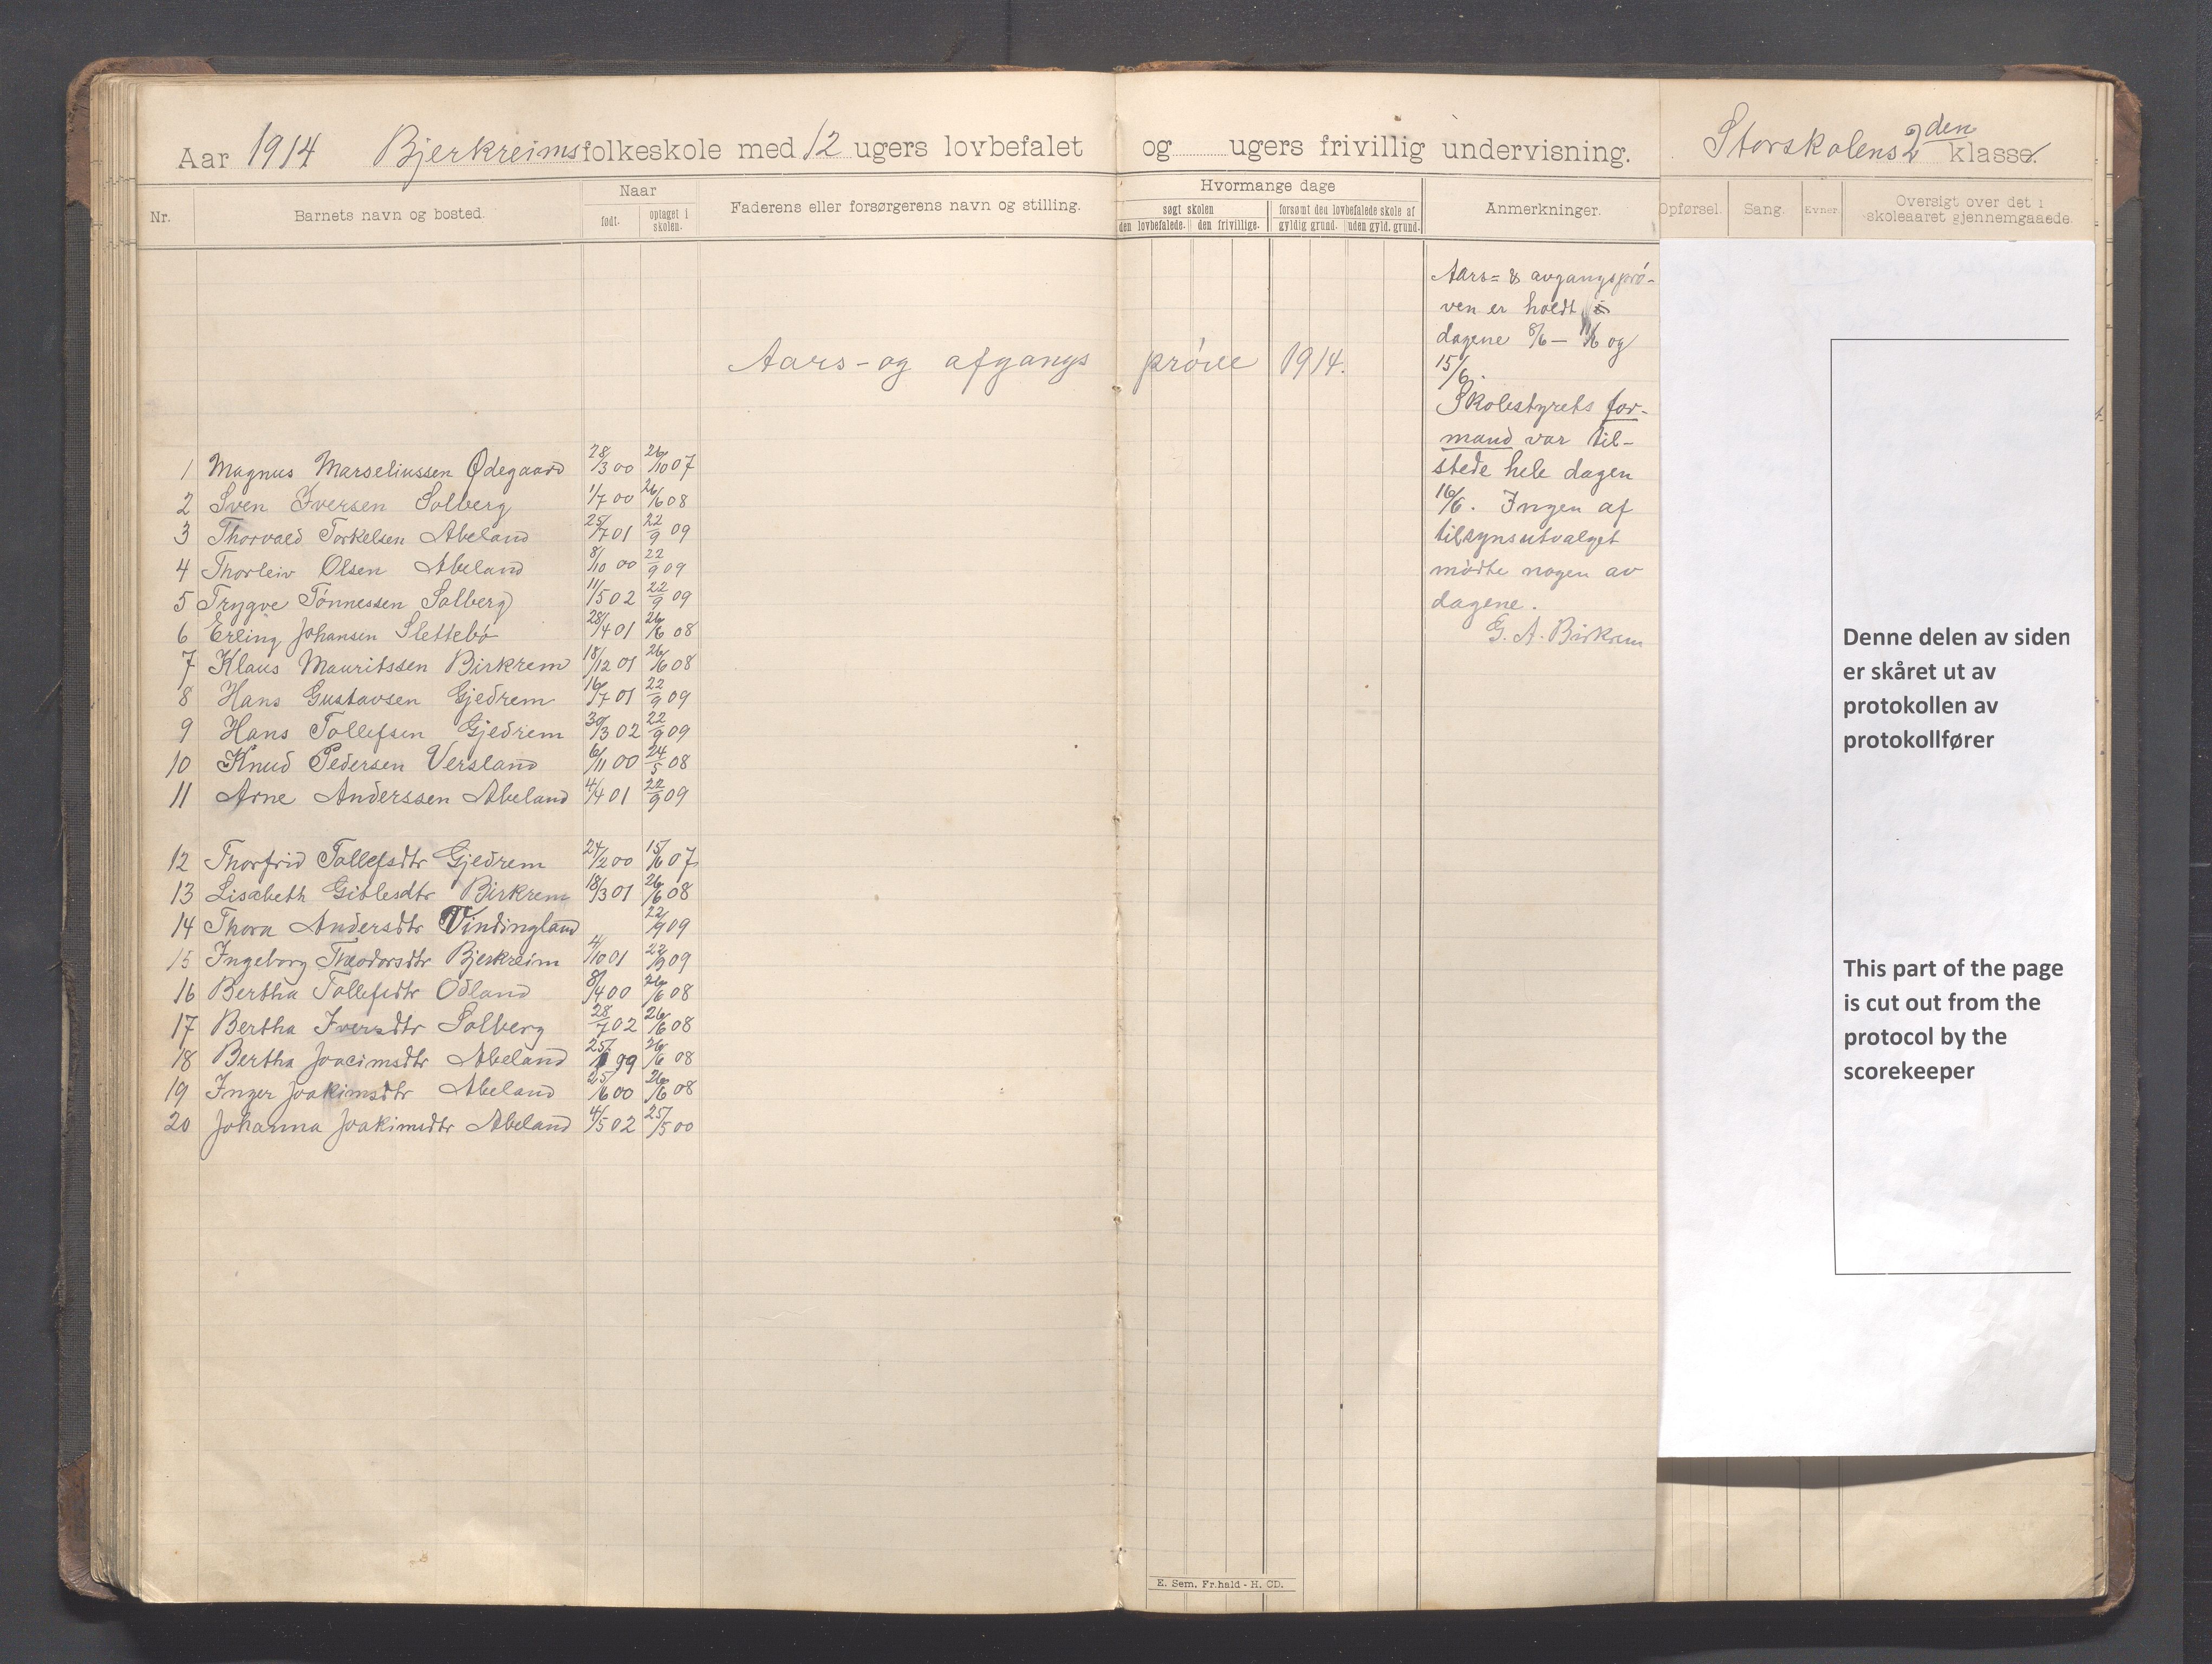 Aar 1914 Bjerkreims folkeskole med 12 ugers lovbefalet og ugers frivillig undervisning. Storskolens 2den klasse.
Nr. Barnets navn og bosted. Naar født. optaget i skolen. Faderens eller forsørgerens navn og stilling. Hvormange dage søgt skolen den lovbefalede. den frivillige. forsømt den lovbefalede skole af gyldig grund. uden gyld. grund. Anmerkninger. Opførsel. Sang. Evner. Oversigt over det i skoleaaret gjennemgaaede.
Aars- og afgangs prøve 1914.
1 Magnus Marseliussen Ødegaard 28/3 00 26/10 07
2 Sven Iversen Solberg 1/7 00 26/6 08
3 Thorvald Torkelsen Abeland 25/7 01 22/9 09
4 Thorleiv Olsen Abeland 8/10 00 22/9 09
5 Trygve Tönnessen Solberg 11/5 02 22/9 09
6 Erling Johansen Slettebö 28/4 01 26/6 08
7 Klaus Mauritssen Birkrem 18/12 01 26/6 08
8 Hans Gustavsen Gjedrem 16/7 01 22/9 09
9 Hans Tollefsen Gjedrem 30/3 02 22/9 09
10 Knud Pedersen Versland 6/11 00 24/5 08
11 Arne Anderssen Abeland 4/4 01 22/9 09
12 Thorfrid Tollefsdtr Gjedrem 24/2 00 15/6 07
13 Lisabeth Giolesdtr Birkrem 18/3 01 26/6 08
14 Thora Andersdtr Vindingland 22/9 09
15 Ingeborg Theodorsdtr Bjerkreim 4/10 01 22/9 09
16 Bertha Tollefsdtr Odland 8/4 00 26/6 08
17 Bertha Iversdtr Solberg 28/7 02 26/6 08
18 Bertha Joacimsdtr Abeland 99 26/6 08
19 Inger Joakimsdtr Abeland 25/6 00 26/6 08
20 Johanna Joakimsdtr Abeland 4/5 02 25/5 00
Aars= & avgangsprö-
ven er holdt i
dagene 8/6 – 11/6 og
15/6.
Skolestyrets for-
mand var til-
stede hele dagen
16/6. Ingen af
tilsynsutvalget
mødte nogen av
dagene.
G. A. Birkrem
E. Sem. Fr.hald - H. CD.
Denne delen av siden
er skåret ut av
protokollen av
protokollfører
This part of the page
is cut out from the
protocol by the
scorekeeper